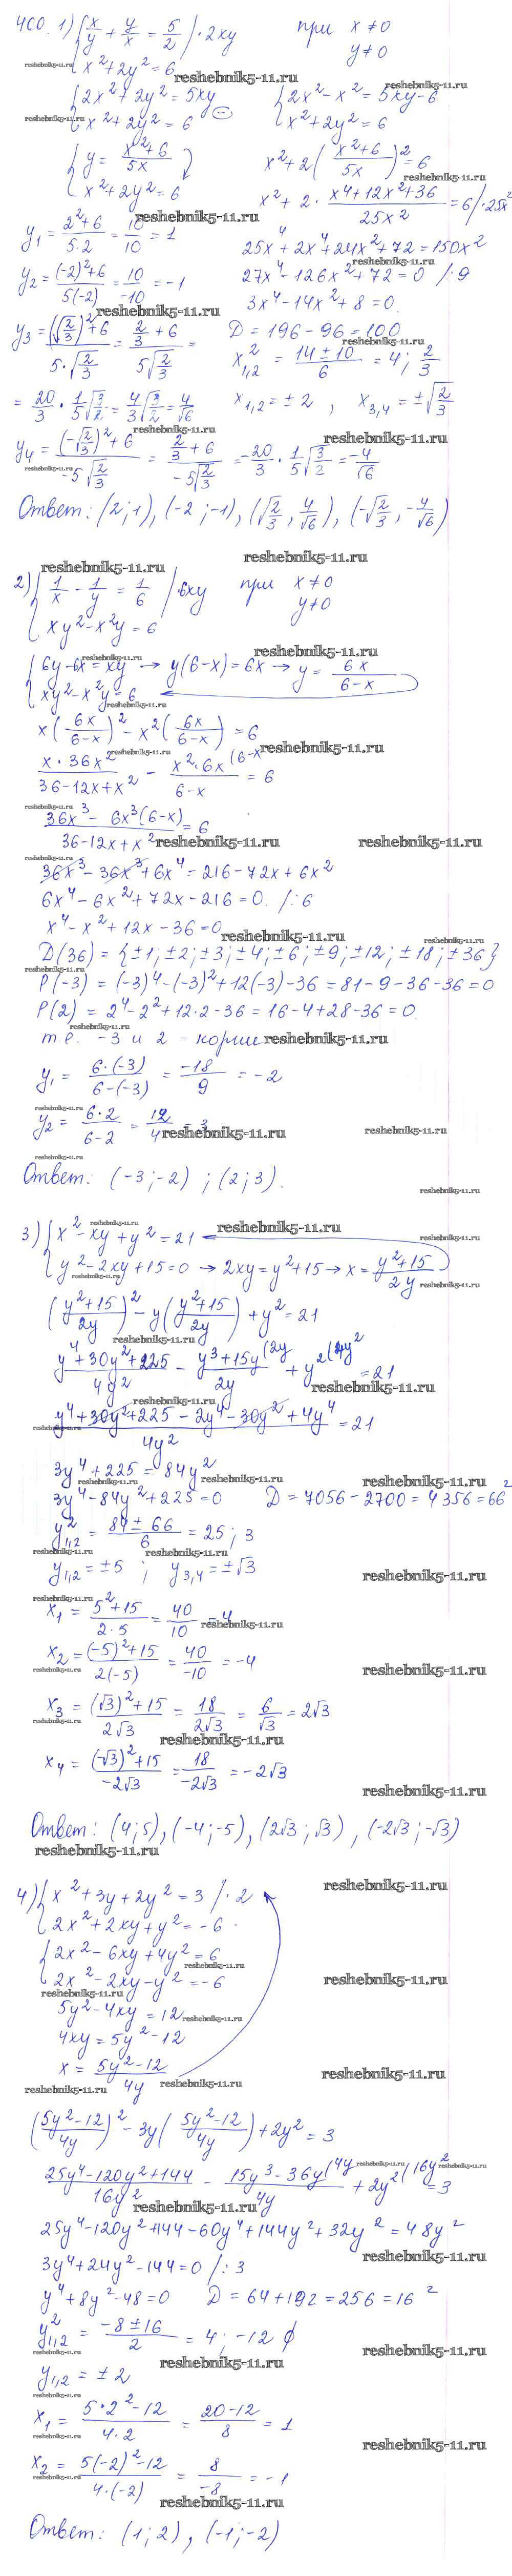 400. 1) { x/y + y/x = 5/2 /·2xy при x ≠ 0
x² + 2y² = 6 y ≠ 0
reshebnik5-11.ru
{ 2x² + 2y² = 5xy { 2x² - x² = 5xy - 6
x² + 2y² = 6 ⊖ x² + 2y² = 6
{ y = (x²+6)/5x x² + 2((x²+6)/5x)² = 6
x² + 2y² = 6 x² + 2 · (x⁴+12x²+36)/25x² = 6 /·25x²
reshebnik5-11.ru
y₁ = (2²+6)/(5·2) = 10/10 = 1 25x⁴ + 2x⁴ + 24x² + 72 = 150x²
y₂ = ((-2)²+6)/(5(-2)) = 10/-10 = -1 27x⁴ - 126x² + 72 = 0 /:9
3x⁴ - 14x² + 8 = 0.
y₃ = ((√(2/3))²+6)/(5·√(2/3)) = (2/3+6)/(5√(2/3)) = D = 196 - 96 = 100
x²₁,₂ = (14±10)/6 = 4; 2/3
= 20/3 · 1/5 √(3/2) = 4/3 √(3/2) = 4/√6 x₁,₂ = ±2 , x₃,₄ = ±√(2/3)
y₄ = ((-√(2/3))²+6)/(-5√(2/3)) = (2/3+6)/(-5√(2/3)) = -20/3 · 1/5 √(3/2) = -4/√6
Ответ: (2; 1), (-2; -1), (√(2/3), 4/√6), (-√(2/3), -4/√6)
reshebnik5-11.ru reshebnik5-11.ru
2) { 1/x - 1/y = 1/6 /·6xy при x ≠ 0
xy² - x²y = 6 y ≠ 0
reshebnik5-11.ru
{ 6y - 6x = xy → y(6-x) = 6x → y = 6x/(6-x)
xy² - x²y = 6
x(6x/(6-x))² - x²(6x/(6-x)) = 6
(x·36x²)/(36-12x+x²) - (x²·6x (6-x)/(6-x) = 6
(36x³ - 6x³(6-x))/(36-12x+x²) = 6
reshebnik5-11.ru reshebnik5-11.ru
36x³ - 36x³ + 6x⁴ = 216 - 72x + 6x²
6x⁴ - 6x² + 72x - 216 = 0. /:6
x⁴ - x² + 12x - 36 = 0
D(36) = {±1; ±2; ±3; ±4; ±6; ±9; ±12; ±18; ±36}
P(-3) = (-3)⁴ - (-3)² + 12(-3) - 36 = 81 - 9 - 36 - 36 = 0
P(2) = 2⁴ - 2² + 12·2 - 36 = 16 - 4 + 28 - 36 = 0.
т.е. -3 и 2 - корни reshebnik5-11.ru
y₁ = (6·(-3))/(6-(-3)) = -18/9 = -2
y₂ = (6·2)/(6-2) = 12/4 = 3
Ответ: (-3; -2) ; (2; 3).
reshebnik5-11.ru
3) { x² - xy + y² = 21
y² - 2xy + 15 = 0 → 2xy = y² + 15 → x = (y²+15)/2y
((y²+15)/2y)² - y((y²+15)/2y) + y² = 21
(y⁴+30y²+225)/4y² - (y³+15y (2y)/2y + y² (4y² = 21
(y⁴ + 30y² + 225 - 2y⁴ - 30y² + 4y⁴)/4y² = 21
3y⁴ + 225 = 84y²
3y⁴ - 84y² + 225 = 0 D = 7056 - 2700 = 4356 = 66²
y²₁,₂ = (84±66)/6 = 25; 3
y₁,₂ = ±5 ; y₃,₄ = ±√3
x₁ = (5²+15)/(2·5) = 40/10 = 4
x₂ = ((-5)²+15)/(2(-5)) = 40/-10 = -4
x₃ = ((√3)²+15)/(2√3) = 18/(2√3) = 6/√3 = 2√3
x₄ = ((-√3)²+15)/(-2√3) = 18/(-2√3) = -2√3
Ответ: (4; 5), (-4; -5), (2√3; √3), (-2√3; -√3)
reshebnik5-11.ru
4) { x² + 3y + 2y² = 3 /·2
2x² + 2xy + y² = -6
{ 2x² - 6xy + 4y² = 6
2x² - 2xy - y² = -6
5y² - 4xy = 12
4xy = 5y² - 12
x = (5y²-12)/4y
((5y²-12)/4y)² - 3y((5y²-12)/4y) + 2y² = 3
(25y⁴-120y²+144)/16y² - (15y³-36y (4y)/4y + 2y² (16y² = 3
25y⁴ - 120y² + 144 - 60y⁴ + 144y² + 32y² = 48y²
3y⁴ + 24y² - 144 = 0 /:3
y⁴ + 8y² - 48 = 0 D = 64 + 192 = 256 = 16²
y²₁,₂ = (-8±16)/2 = 4; -12 ∅
y₁,₂ = ±2
x₁ = (5·2²-12)/(4·2) = (20-12)/8 = 1
x₂ = (5(-2)²-12)/(4·(-2)) = 8/-8 = -1
reshebnik5-11.ru
Ответ: (1; 2), (-1; -2)